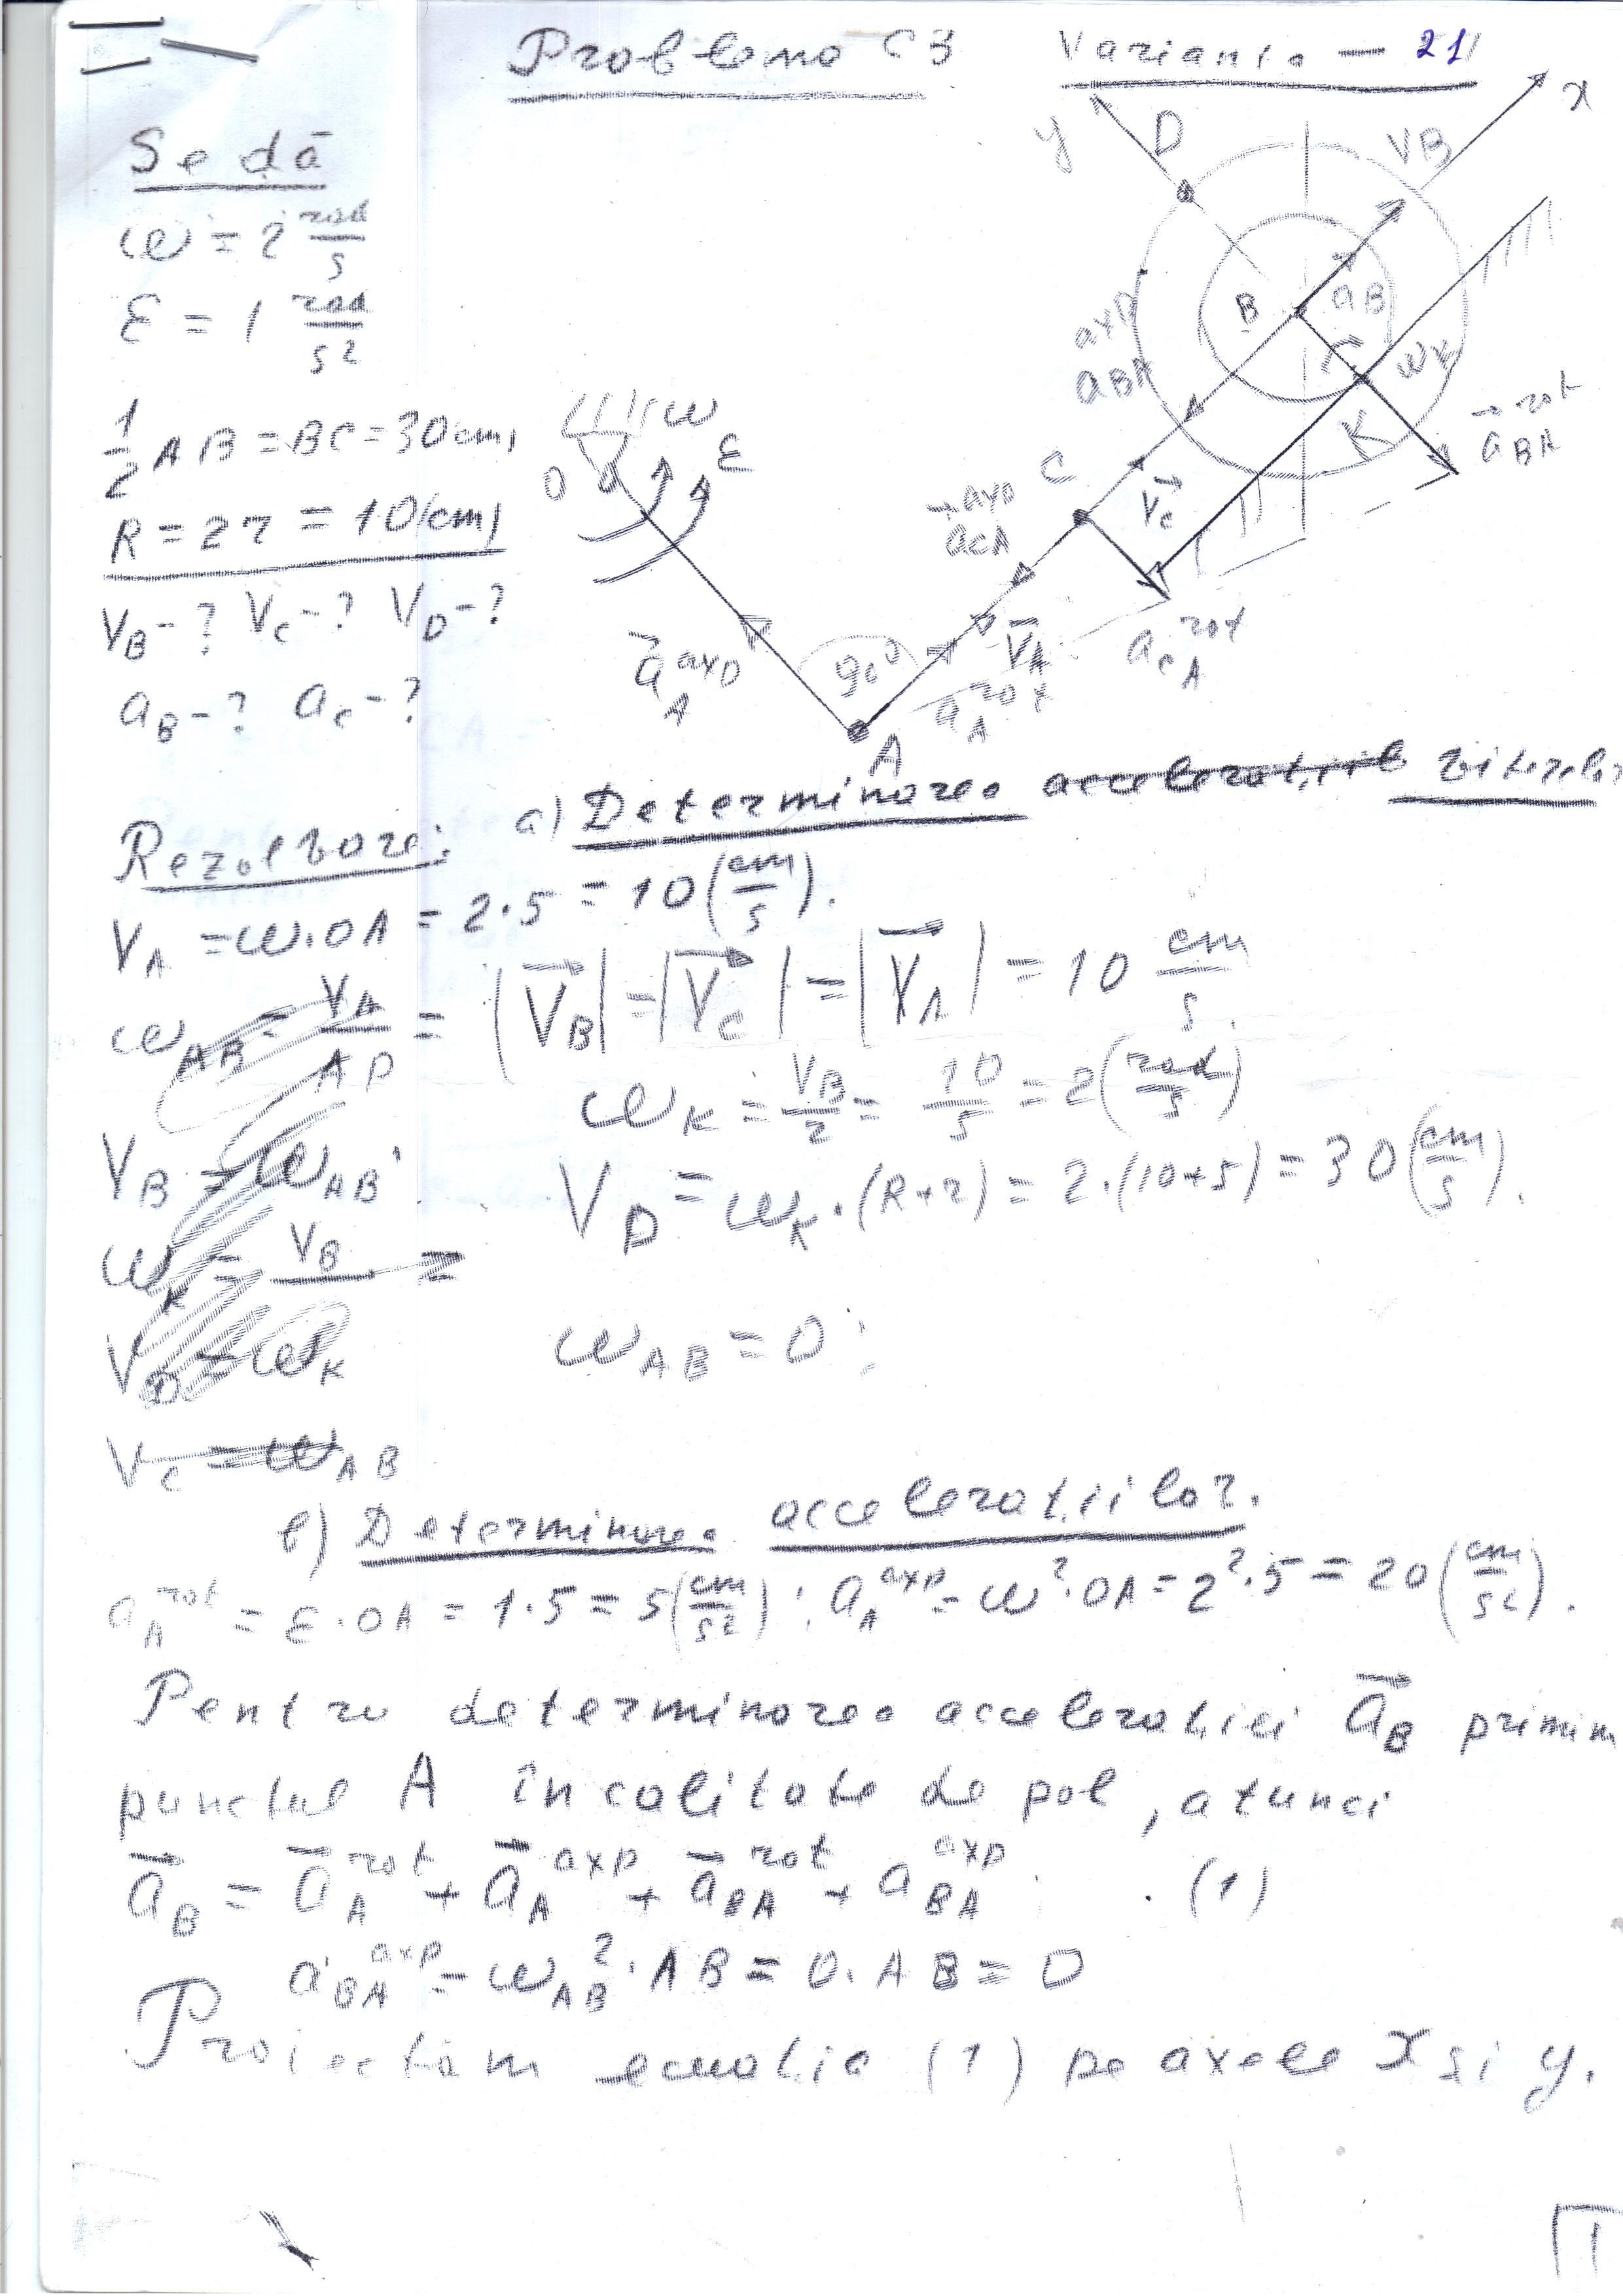 Problema C3 Varianta - 21
Se dă
ω = 2 rad/s
ε = 1 rad/s2
1/2 AB = BC = 30 cm,
R = 2r = 10 (cm)
VB - ? VC - ? VD - ?
aB - ? aC - ?
y D VB x
B aB
axp aBA
ωK
K
aBA rot
O ω ε
C VC
aCA axp
aA axp
90°
VA
aA rot
aCA rot
A
Rezolvare: a) Determinarea acceleratiil vitezelor
VA = ω·OA = 2·5 = 10 (cm/s).
ωAB = VA/AP = |VB| = |VC| = |VA| = 10 cm/s.
ωK = VB/r = 10/5 = 2 (rad/s)
VB = ωAB·
VD = ωK·(R+r) = 2·(10+5) = 30 (cm/s).
ωK = VB/ =
VD = ωK
ωAB = 0;
VC = ωAB
b) Determinarea acceleratiilor.
aA rot = ε·OA = 1·5 = 5 (cm/s2); aA axp = ω2·OA = 2²·5 = 20 (cm/s2).
Pentru determinarea acceleratiei aB primim
punctul A în calitate de pol, atunci
aB = aA rot + aA axp + aBA rot + aBA axp . (1)
aBA axp = ωAB²·AB = 0·AB = 0
Proiectăm ecuatia (1) pe axele x si y.
1